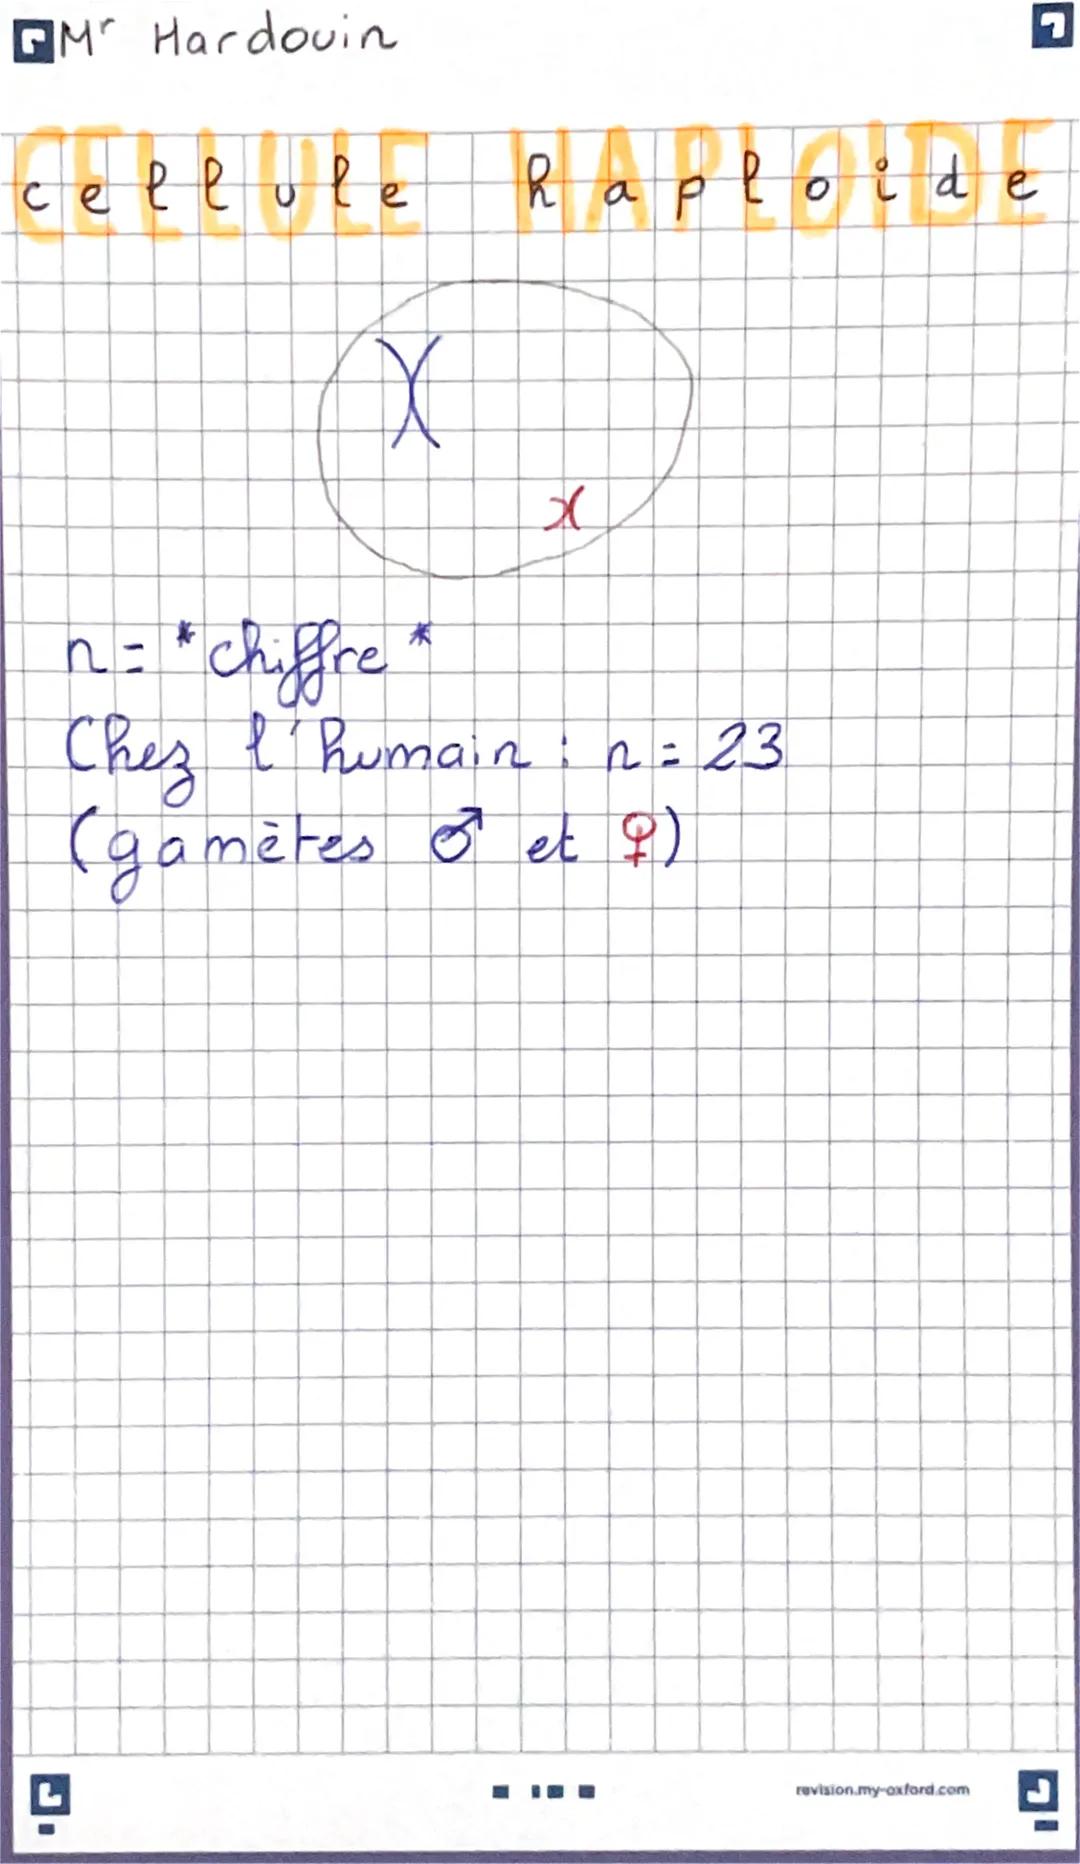 Mr Hardouin
cellule haploide
CELLULE HAPLOIDE
n = *chiffre*
Chez l'humain : n = 23
(gamètes ♂ et ♀)
revision.my-oxford.com